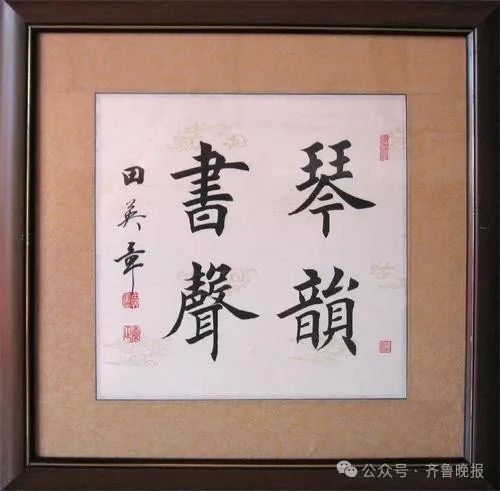 琴韻
書聲
田英章
公众号 · 齐鲁晚报